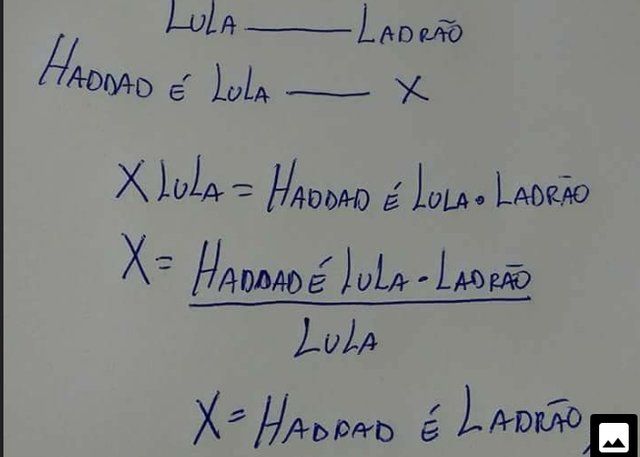 LULA — LADRÃO
HADDAD É LULA — X
X LULA = HADDAD É LULA . LADRÃO
X = HADDAD É LULA . LADRÃO
LULA
X = HADDAD É LADRÃO